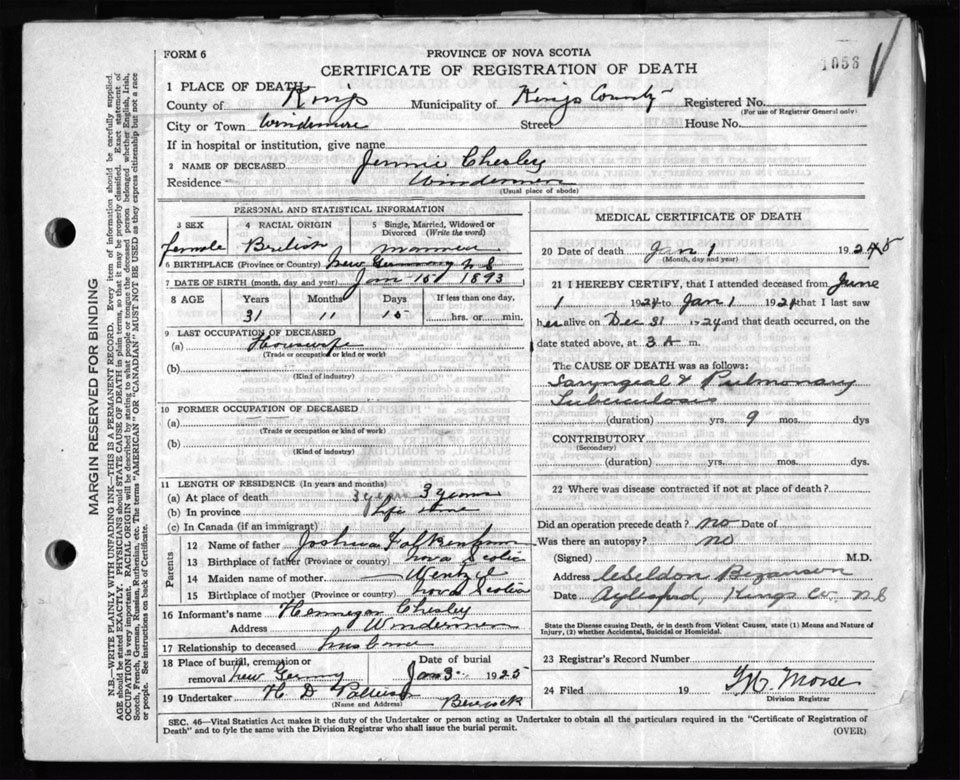 FORM 6
PROVINCE OF NOVA SCOTIA
CERTIFICATE OF REGISTRATION OF DEATH
1056
1 PLACE OF DEATH
County of Kings Municipality of Kings County Registered No.
(For use of Registrar General only)
City or Town Windermere Street House No.
If in hospital or institution, give name
2 NAME OF DECEASED Jennie Chesley
Residence Windermere
(Usual place of abode)
PERSONAL AND STATISTICAL INFORMATION
3 SEX
4 RACIAL ORIGIN
5 Single, Married, Widowed or Divorced (Write the word)
female British married
6 BIRTHPLACE (Province or Country) New Germany N S
7 DATE OF BIRTH (month, day and year) Jan 15 1893
8 AGE Years Months Days If less than one day,
31 11 15 hrs. or min.
9 LAST OCCUPATION OF DECEASED
(a) Housewife
(Trade or occupation or kind or work)
(b)
(Kind of industry)
10 FORMER OCCUPATION OF DECEASED
(a)
(Trade or occupation or kind of work)
(b)
(Kind of industry)
11 LENGTH OF RESIDENCE (In years and months)
(a) At place of death 3 years 3 years
(b) In province life time
(c) In Canada (if an immigrant)
Parents
12 Name of father Joshua
13 Birthplace of father (Province or country) Nova Scotia
14 Maiden name of mother Wentzel
15 Birthplace of mother (Province or country) Nova Scotia
16 Informant's name Chesley
Address Windermere
17 Relationship to deceased husband
18 Place of burial, cremation or removal New Germany
Date of burial Jan 3 1925
19 Undertaker H D Berwick
(Name and Address)
MEDICAL CERTIFICATE OF DEATH
20 Date of death Jan 1 192
(Month, day and year)
21 I HEREBY CERTIFY, that I attended deceased from June
1 1924 to Jan 1 192 that I last saw
her alive on Dec 31 1924 and that death occurred, on the
date stated above, at 3 A m.
The CAUSE OF DEATH was as follows:
Laryngeal & Pulmonary
Tuberculosis
(duration) yrs. 9 mos. dys
CONTRIBUTORY
(Secondary)
(duration) yrs. mos. dys
22 Where was disease contracted if not at place of death?
Did an operation precede death? no Date of
Was there an autopsy? no
(Signed) M.D.
Address Bezanson
Date Aylesford, Kings Co. N S
State the Disease causing Death, or in death from Violent Causes, state (1) Means and Nature of
Injury, (2) whether Accidental, Suicidal or Homicidal.
23 Registrar's Record Number
24 Filed 19 Morse
Division Registrar
SEC. 46—Vital Statistics Act makes it the duty of the Undertaker or person acting as Undertaker to obtain all the particulars required in the "Certificate of Registration of
Death" and to fyle the same with the Division Registrar who shall issue the burial permit.
(OVER)
MARGIN RESERVED FOR BINDING
N.B.—WRITE PLAINLY WITH UNFADING INK—THIS IS A PERMANENT RECORD. Every item of information should be carefully supplied.
AGE should be stated EXACTLY. PHYSICIANS should STATE CAUSE OF DEATH in plain terms, so that it may be properly classified. Exact statement of
OCCUPATION is very important. RACIAL ORIGIN will be described by stating to what people or tongue the deceased person belonged whether English, Irish,
Scotch, French, German, Russian, Ruthenian, etc. The terms "AMERICAN" or "CANADIAN" MUST NOT BE USED as they express citizenship but not a race
or people. See instructions on back of Certificate.